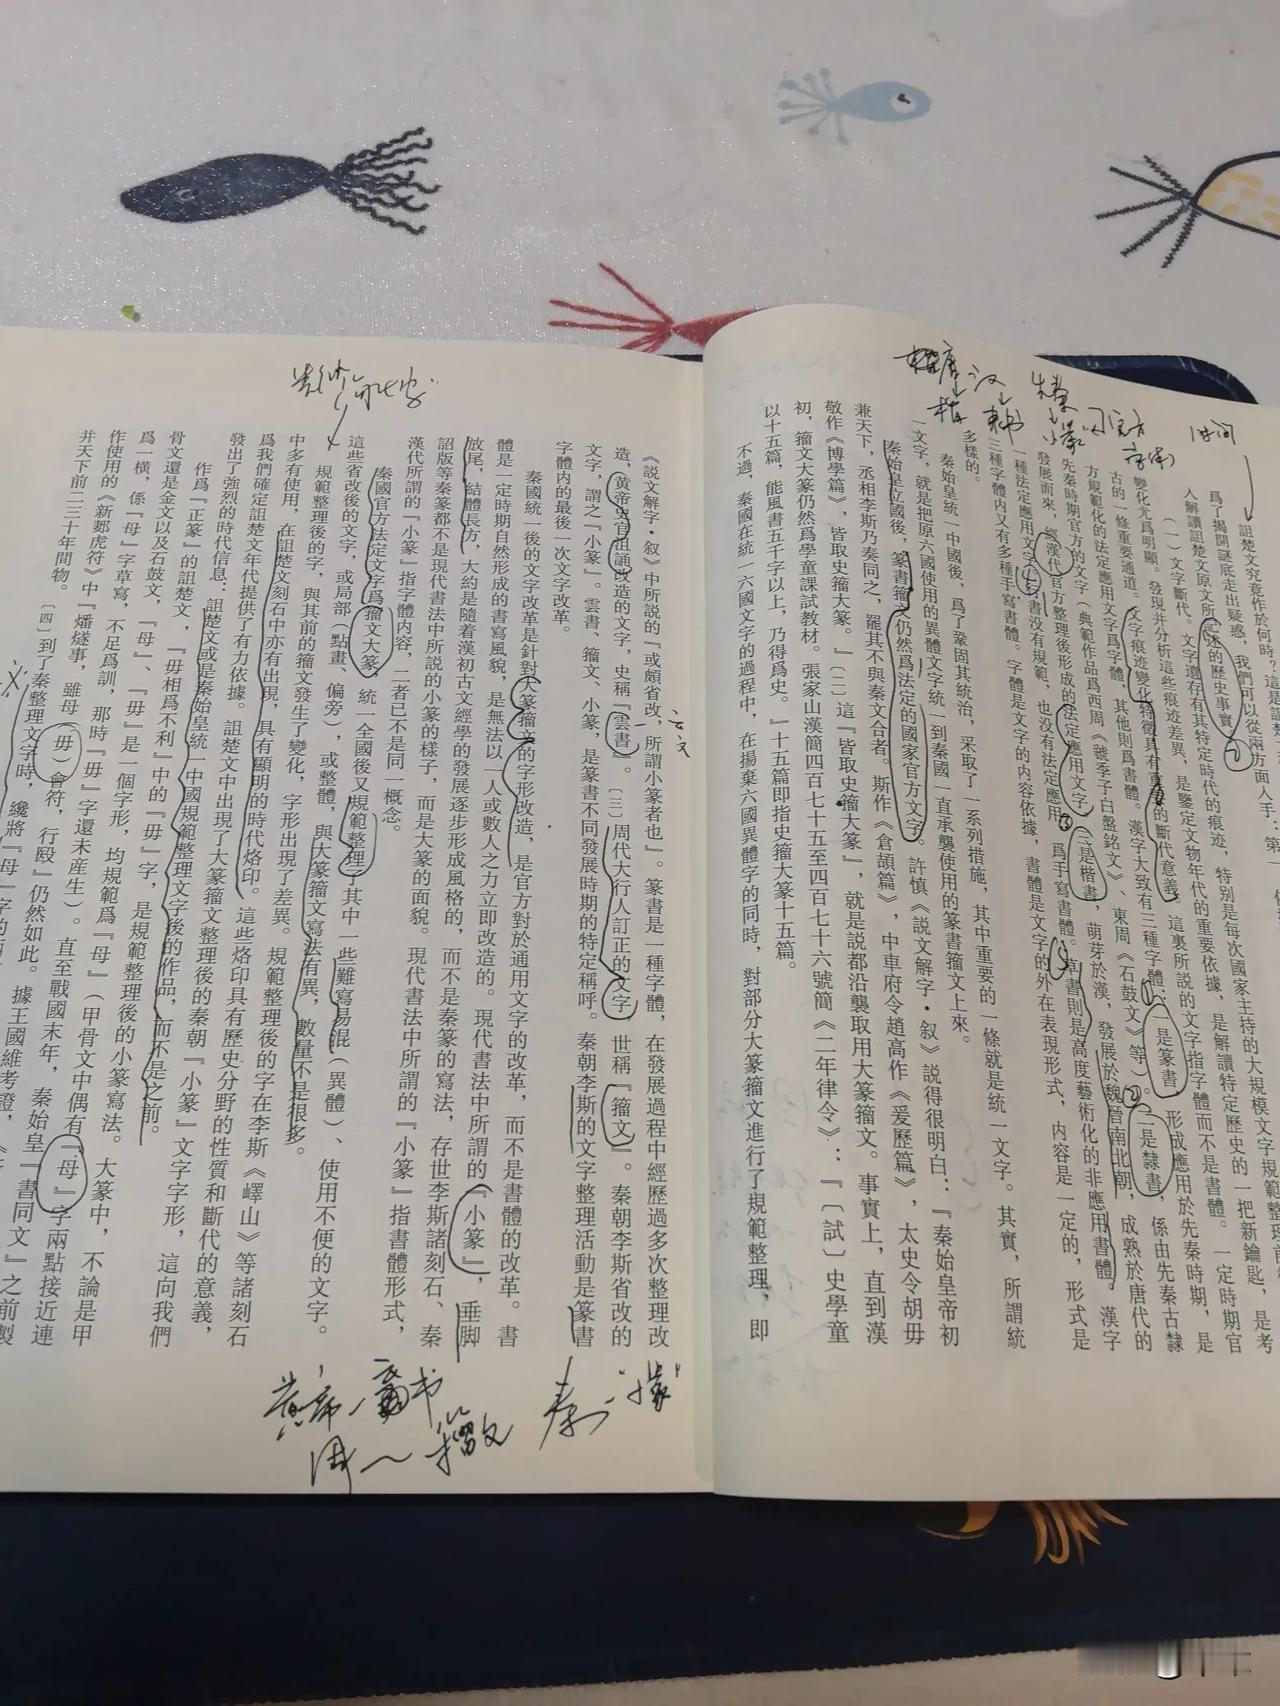 詛楚文究竟作於何時？這是詛楚
爲了揭開謎底走出疑惑，我們可以從兩方面人手：第一
人解讀詛楚文原文所記述的歷史事實
（一）文字斷代。文字還存有其特定時代的痕迹，特別是每次國家主持的大規模文字規範整理
古的一條重要通道。文字痕迹變化特徵具有重要的斷代意義。這裏所說的文字指字體而不是書體。一定時期官
方規範化的法定應用文字爲字體，其他則爲書體。漢字大致有三種字體：一是篆書，形成應用於先秦時期，是
先秦時期官方的文字（典範作品爲西周《虢季子白盤銘文》、東周《石鼓文》等）。二是隸書，係由先秦古隸
發展而來，經漢代官方整理後形成的法定應用文字。三是楷書，萌芽於漢，發展於魏晉南北朝，成熟於唐代的
一種法定應用文字。
三種字體内又有多種手寫書體。字體是文字的内容依據，書體是文字的外在表現形式，内容是一定的，形式是
多樣的。
秦始皇統一中國後，爲了鞏固其統治，采取了一系列措施，其中重要的一條就是統一文字。其實，所謂統
一文字，就是把原六國使用的異體文字統一到秦國一直承襲使用的篆書籀文上來。
秦始皇立國後，篆書籀文仍然爲法定的國家官方文字。許慎《説文解字·叙》説得很明白：『秦始皇帝初
兼天下，丞相李斯乃奏同之，罷其不與秦文合者。斯作《倉頡篇》，中車府令趙高作《爰歷篇》，太史令胡毋
敬作《博學篇》，皆取史籀大篆。』〔二〕這『皆取史籀大篆』，就是説都沿襲取用大篆籀文。事實上，直到漢
初，籀文大篆仍然爲學童課試教材。張家山漢簡四百七十五至四百七十六號簡《二年律令》：『〔試〕史學童
以十五篇，能風書五千字以上，乃得爲史。』十五篇即指史籀大篆十五篇。
不過，秦國在統一六國文字的過程中，在揚棄六國異體字的同時，對部分大篆籀文進行了規範整理，即
《説文解字·叙》中所説的『或頗省改，所謂小篆者也』。篆書是一種字體，在發展過程中經歷過多次整理改
造，黄帝史官沮誦改造的文字，史稱『雲書』。〔三〕周代大行人訂正的文字，世稱『籀文』。秦朝李斯省改的
文字，謂之『小篆』。雲書、籀文、小篆，是篆書不同發展時期的特定稱呼。秦朝李斯的文字整理活動是篆書
字體内的最後一次文字改革。
秦國統一後的文字改革是針對大篆籀文的字形改造，是官方對於通用文字的改革，而不是書體的改革。書
體是一定時期自然形成的書寫風貌，是無法以一人或數人之力立即改造的。現代書法中所謂的『小篆』，垂脚
放尾，結體長方，大約是隨着漢初古文經學的發展逐步形成風格的，而不是秦篆的寫法，存世李斯諸刻石、秦
詔版等秦篆都不是現代書法中所説的小篆的樣子，而是大篆的面貌。現代書法中所謂的『小篆』指書體形式，
漢代所謂的『小篆』指字體内容，二者已不是同一概念。
秦國官方法定文字爲籀文大篆，統一全國後又規範整理了其中一些難寫易混（異體）、使用不便的文字。
這些省改後的文字，或局部（點畫、偏旁），或整體，與大篆籀文寫法有異，數量不是很多。
規範整理後的字，與其前的籀文發生了變化，字形出現了差異。規範整理後的字在李斯《嶧山》等諸刻石
中多有使用，在詛楚文刻石中亦有出現，具有顯明的時代烙印。這些烙印具有歷史分野的性質和斷代的意義，
爲我們確定詛楚文年代提供了有力依據。詛楚文中出現了大篆籀文整理後的秦朝『小篆』文字字形，這向我們
發出了強烈的時代信息：詛楚文或是秦始皇統一中國規範整理文字後的作品，而不是之前。
作爲『正篆』的詛楚文，『毋相爲不利』中的『毋』字，是規範整理後的小篆寫法。大篆中，不論是甲
骨文還是金文以及石鼓文，『母』、『毋』是一個字形，均規範爲『母』（甲骨文中偶有『母』字兩點接近連
爲一橫，係『母』字草寫，不足爲訓，那時『毋』字還未産生）。直至戰國末年，秦始皇『書同文』之前製
作使用的《新郪虎符》中『燔燧事，雖母（毋）會符，行殹』仍然如此。據王國維考證，
并天下前二三十年間物。〔四〕到了秦整理文字時，纔將『母』字的
唐 汉 先秦
楷 隶书 小篆
官方
字体
时间
黄帝—云书
周—籀文
秦—小篆